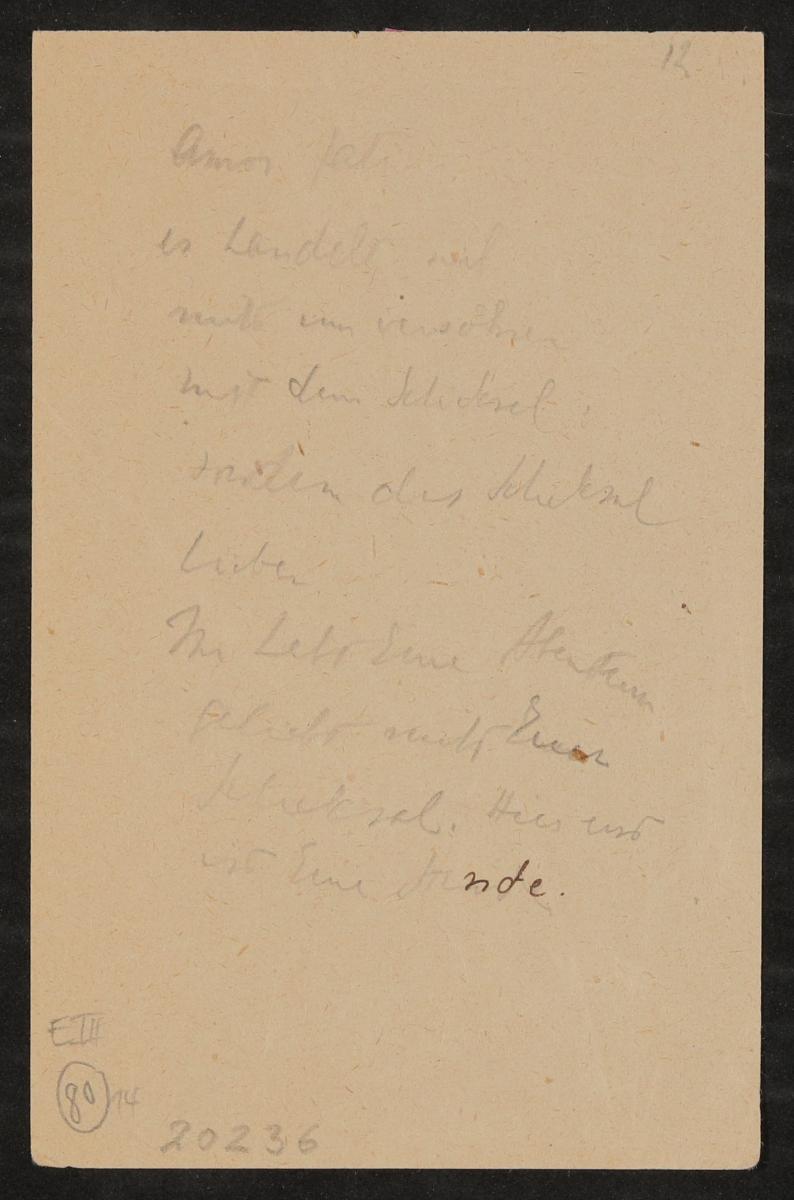 12
Amor fati
es handelt sich
nicht um versöhnen
mit dem Schicksal,
sondern das Schicksal
lieben
Ihr habt Eure
geliebt nicht Euer
Schicksal. Hier erst
ist Eure Stunde.
E III
80 14
20236